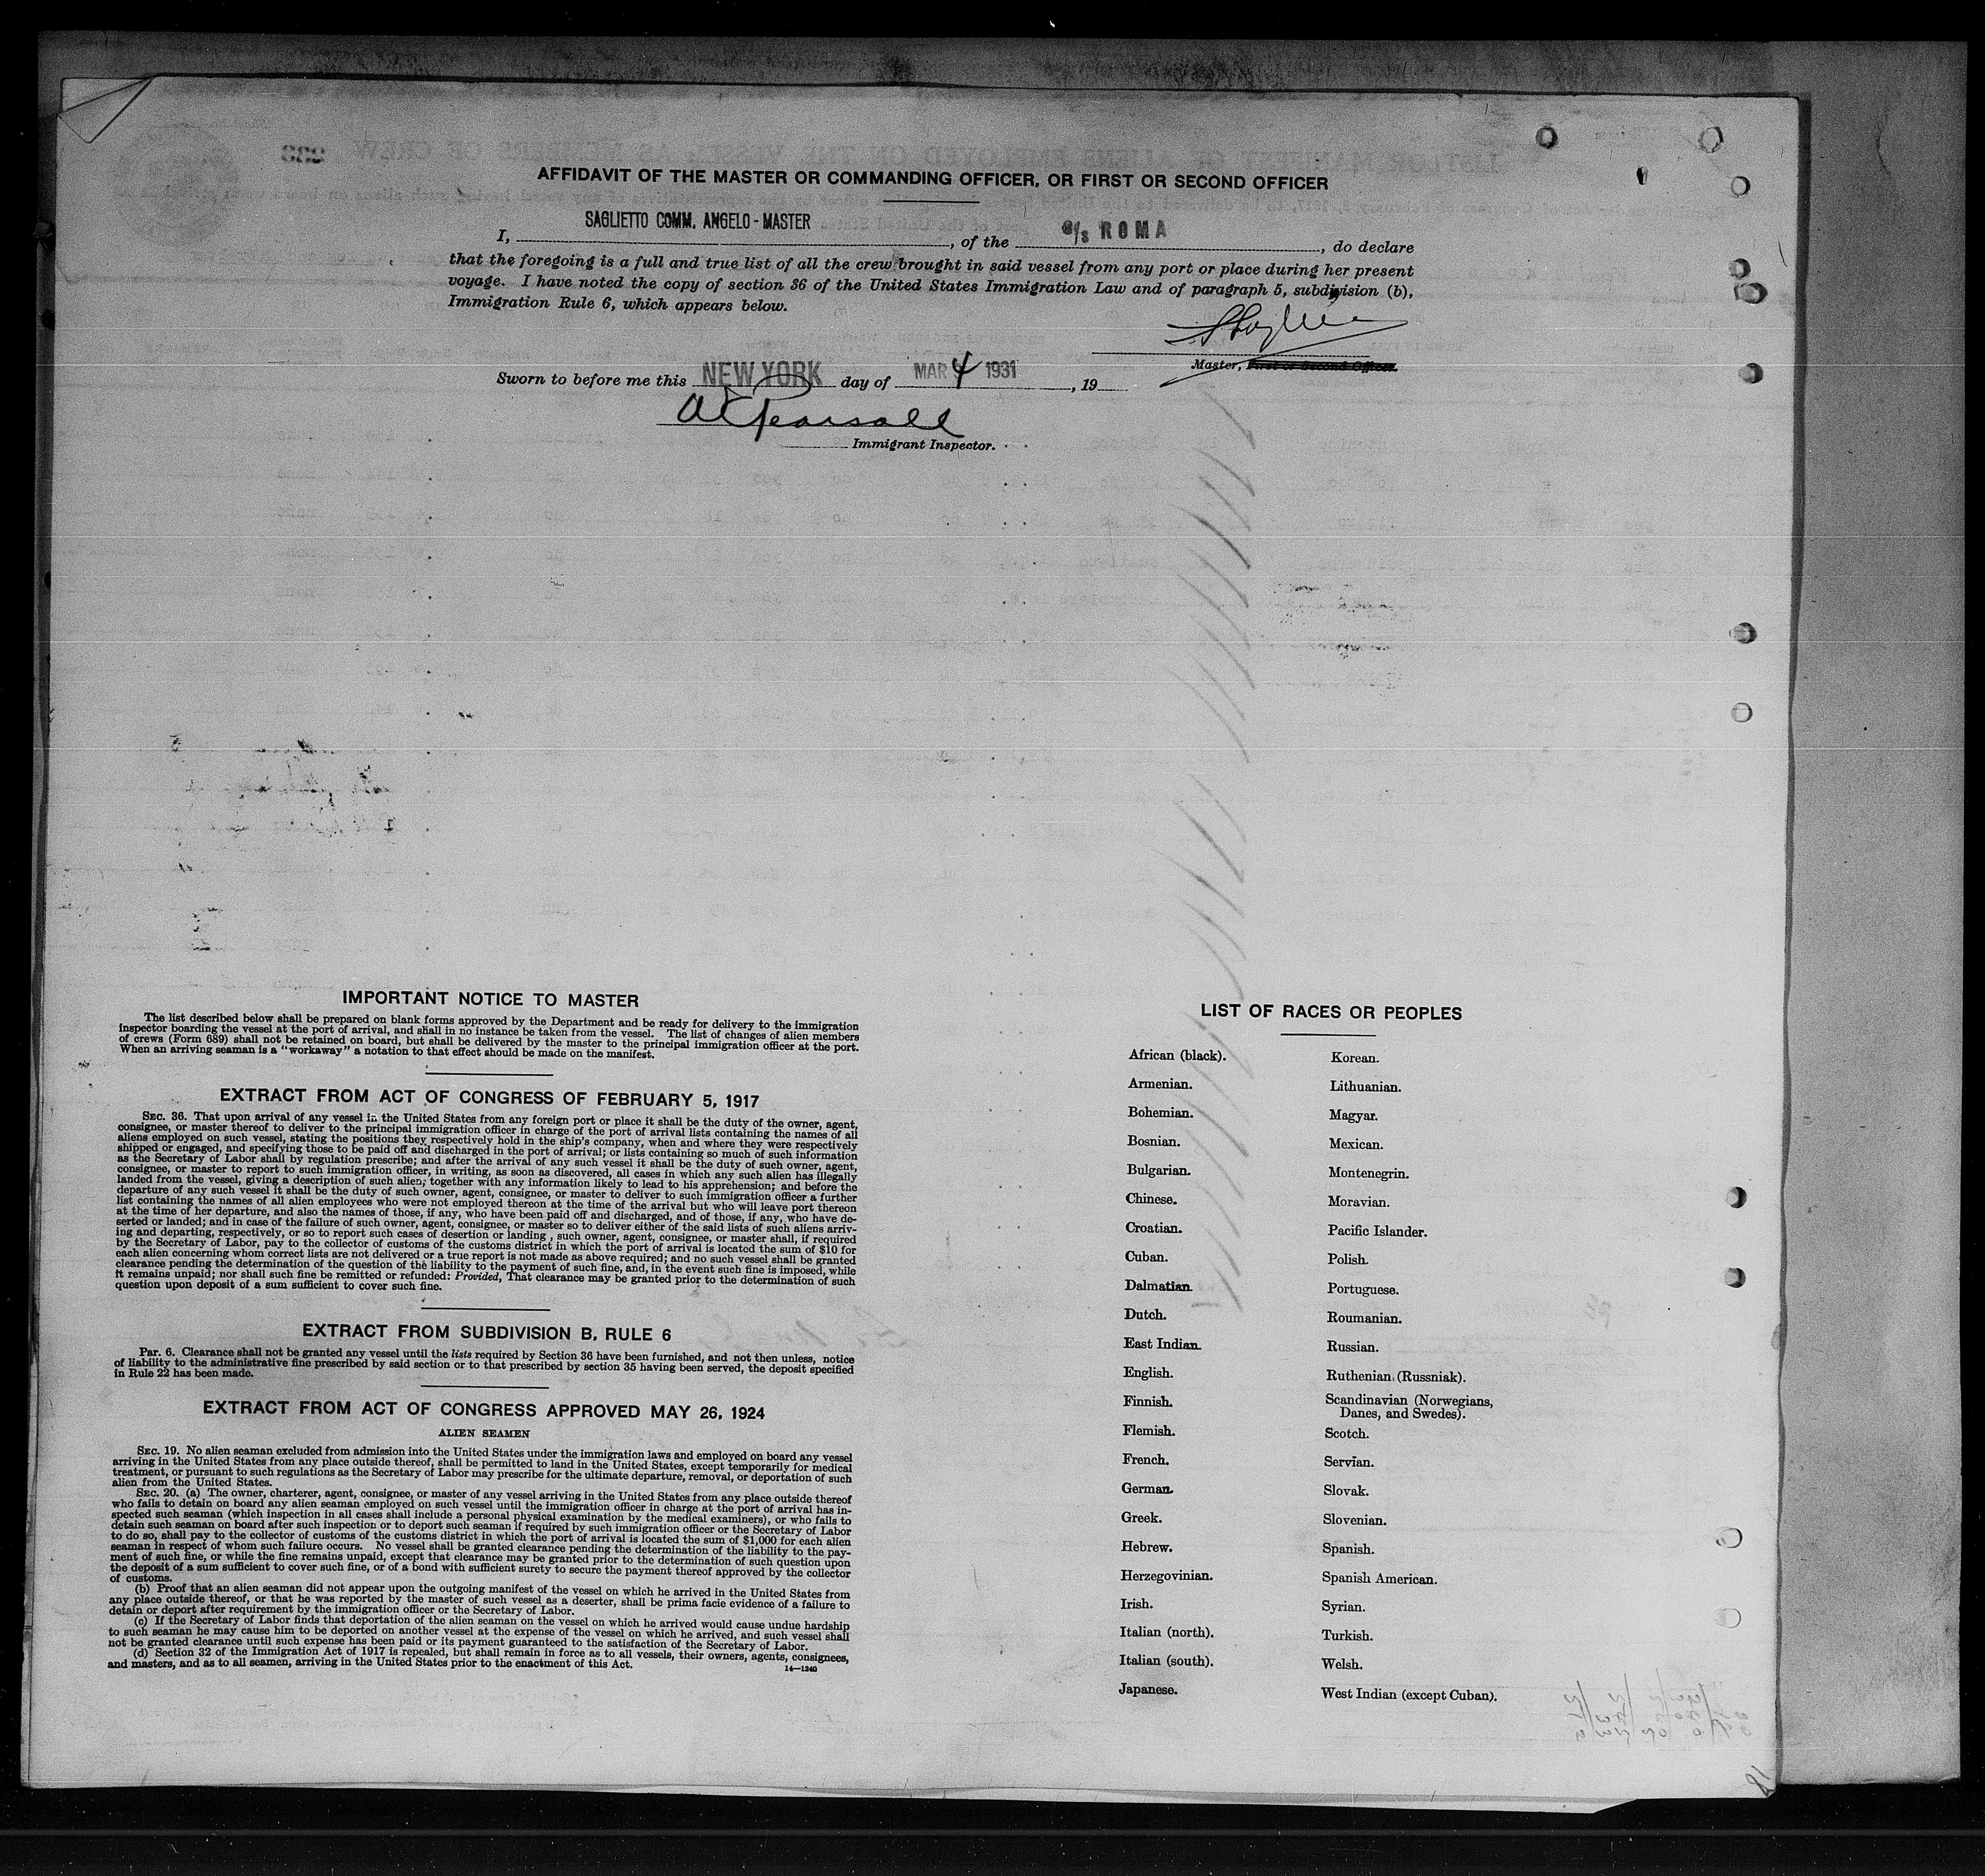 AFFIDAVIT OF THE MASTER OR COMMANDING OFFICER, OR FIRST OR SECOND OFFICER
I, SAGLIETTO COMM. ANGELO - MASTER, of the S/S ROMA, do declare
that the foregoing is a full and true list of all the crew brought in said vessel from any port or place during her present
voyage. I have noted the copy of section 36 of the United States Immigration Law and of paragraph 5, subdivision (b),
Immigration Rule 6, which appears below.
Master, First or Second Officer.
Sworn to before me this NEW YORK day of MAR 4 1931, 19
Pearsall
Immigrant Inspector.
IMPORTANT NOTICE TO MASTER
The list described below shall be prepared on blank forms approved by the Department and be ready for delivery to the immigration
inspector boarding the vessel at the port of arrival, and shall in no instance be taken from the vessel. The list of changes of alien members
of crews (Form 689) shall not be retained on board, but shall be delivered by the master to the principal immigration officer at the port.
When an arriving seaman is a "workaway" a notation to that effect should be made on the manifest.
EXTRACT FROM ACT OF CONGRESS OF FEBRUARY 5, 1917
SEC. 36. That upon arrival of any vessel in the United States from any foreign port or place it shall be the duty of the owner, agent,
consignee, or master thereof to deliver to the principal immigration officer in charge of the port of arrival lists containing the names of all
aliens employed on such vessel, stating the positions they respectively hold in the ship's company, when and where they were respectively
shipped or engaged, and specifying those to be paid off and discharged in the port of arrival; or lists containing so much of such information
as the Secretary of Labor shall by regulation prescribe; and after the arrival of any such vessel it shall be the duty of such owner, agent,
consignee, or master to report to such immigration officer, in writing, as soon as discovered, all cases in which any such alien has illegally
landed from the vessel, giving a description of such alien, together with any information likely to lead to his apprehension; and before the
departure of any such vessel it shall be the duty of such owner, agent, consignee, or master to deliver to such immigration officer a further
list containing the names of all alien employees who were not employed thereon at the time of the arrival but who will leave port thereon
at the time of her departure, and also the names of those, if any, who have been paid off and discharged, and of those, if any, who have de-
serted or landed; and in case of the failure of such owner, agent, consignee, or master so to deliver either of the said lists of such aliens arriv-
ing and departing, respectively, or so to report such cases of desertion or landing , such owner, agent, consignee, or master shall, if required
by the Secretary of Labor, pay to the collector of customs of the customs district in which the port of arrival is located the sum of $10 for
each alien concerning whom correct lists are not delivered or a true report is not made as above required; and no such vessel shall be granted
clearance pending the determination of the question of the liability to the payment of such fine, and, in the event such fine is imposed, while
it remains unpaid; nor shall such fine be remitted or refunded: Provided, That clearance may be granted prior to the determination of such
question upon deposit of a sum sufficient to cover such fine.
EXTRACT FROM SUBDIVISION B, RULE 6
Par. 6. Clearance shall not be granted any vessel until the lists required by Section 36 have been furnished, and not then unless, notice
of liability to the administrative fine prescribed by said section or to that prescribed by section 35 having been served, the deposit specified
in Rule 22 has been made.
EXTRACT FROM ACT OF CONGRESS APPROVED MAY 26, 1924
ALIEN SEAMEN
SEC. 19. No alien seaman excluded from admission into the United States under the immigration laws and employed on board any vessel
arriving in the United States from any place outside thereof, shall be permitted to land in the United States, except temporarily for medical
treatment, or pursuant to such regulations as the Secretary of Labor may prescribe for the ultimate departure, removal, or deportation of such
alien from the United States.
SEC. 20. (a) The owner, charterer, agent, consignee, or master of any vessel arriving in the United States from any place outside thereof
who fails to detain on board any alien seaman employed on such vessel until the immigration officer in charge at the port of arrival has in-
spected such seaman (which inspection in all cases shall include a personal physical examination by the medical examiners), or who fails to
detain such seaman on board after such inspection or to deport such seaman if required by such immigration officer or the Secretary of Labor
to do so, shall pay to the collector of customs of the customs district in which the port of arrival is located the sum of $1,000 for each alien
seaman in respect of whom such failure occurs. No vessel shall be granted clearance pending the determination of the liability to the pay-
ment of such fine, or while the fine remains unpaid, except that clearance may be granted prior to the determination of such question upon
the deposit of a sum sufficient to cover such fine, or of a bond with sufficient surety to secure the payment thereof approved by the collector
of customs.
(b) Proof that an alien seaman did not appear upon the outgoing manifest of the vessel on which he arrived in the United States from
any place outside thereof, or that he was reported by the master of such vessel as a deserter, shall be prima facie evidence of a failure to
detain or deport after requirement by the immigration officer or the Secretary of Labor.
(c) If the Secretary of Labor finds that deportation of the alien seaman on the vessel on which he arrived would cause undue hardship
to such seaman he may cause him to be deported on another vessel at the expense of the vessel on which he arrived, and such vessel shall
not be granted clearance until such expense has been paid or its payment guaranteed to the satisfaction of the Secretary of Labor.
(d) Section 32 of the Immigration Act of 1917 is repealed, but shall remain in force as to all vessels, their owners, agents, consignees,
and masters, and as to all seamen, arriving in the United States prior to the enactment of this Act.
14—1240
LIST OF RACES OR PEOPLES
African (black).
Armenian.
Bohemian.
Bosnian.
Bulgarian.
Chinese.
Croatian.
Cuban.
Dalmatian.
Dutch.
East Indian.
English.
Finnish.
Flemish.
French.
German.
Greek.
Hebrew.
Herzegovinian.
Irish.
Italian (north).
Italian (south).
Japanese.
Korean.
Lithuanian.
Magyar.
Mexican.
Montenegrin.
Moravian.
Pacific Islander.
Polish.
Portuguese.
Roumanian.
Russian.
Ruthenian (Russniak).
Scandinavian (Norwegians,
Danes, and Swedes).
Scotch.
Servian.
Slovak.
Slovenian.
Spanish.
Spanish American.
Syrian.
Turkish.
Welsh.
West Indian (except Cuban).